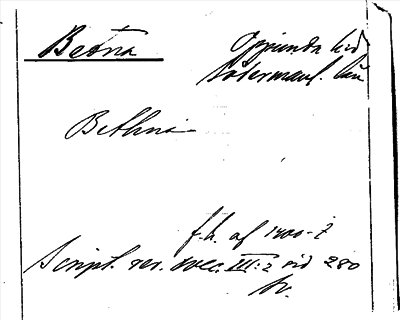 Betna
Oppunda hd
Södermanl. län
Bethna
f.h. af 1400-t
Script. rer. svec. III:2 sid 280